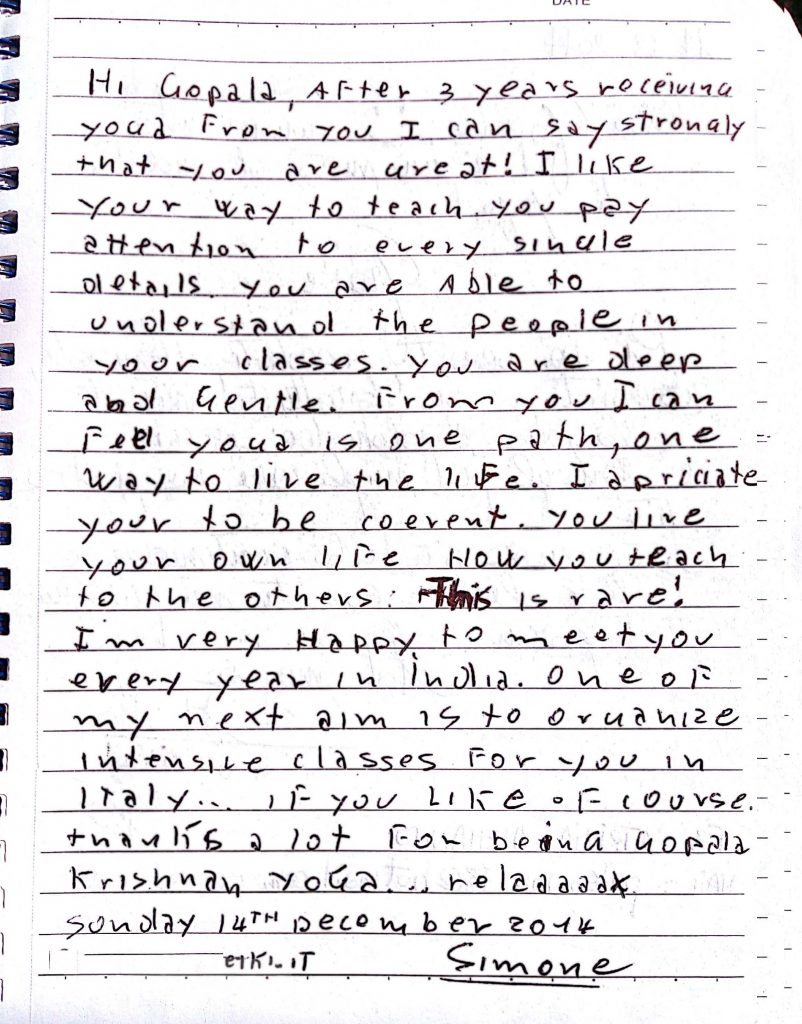 DATE
Hi Gopala, After 3 years receiving
yoga From you I can say strongly
that you are great! I like
your way to teach, you pay
attention to every single
details. you are Able to
understand the people in
your classes. you are deep
and Gentle. From you I can
Feel yoga is one path, one
way to live the life. I apriciate
your to be coerent. you live
your own life How you teach
to the others: This is rare!
I'm very Happy to meet you
every year in india. one of
my next aim is to organize
intensive classes For you in
Italy... iF you LIKE oF course.
thanks a lot For being Gopala
Krishnan yoga... relaaaaax.
sunday 14TH December 2014
Simone